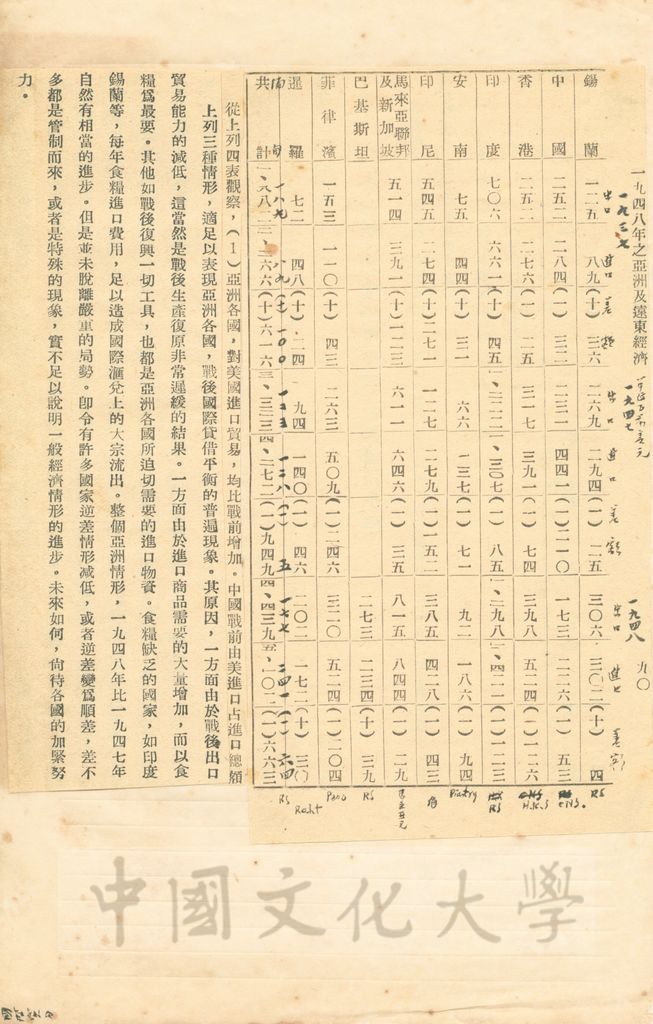 一九四八年之亞洲及遠東經濟
九〇
一九三七
出口 進口 差額
一九四七
出口 進口 差額
一九四八
出口 進口 差額
錫蘭 一二五 八九(十) 三六 二六九 二九四(一) 二五 三〇六 三〇二(十) 四 RS
中國 二五二 二八四(一) 三二 二三一 四四一(一)二一〇 一七三 二二六(一) 五三
香港 二五一 二七六(一) 二五 三一七 三九一(一) 七四 三九八 五二四(一)一二六 H.K.$
印度 七〇六 六六一(十) 四五 一、二二二 一、三〇七(一) 八五 一、二九八 一、四二一(一)一二三 RS
安南 七五 四四(十) 三一 六六 一三七(一) 七一 九二 一八六(一) 九四
印尼 五四五 二七四(十)二七一 一二七 二七九(一)一五二 三八五 四二八(一) 四三
馬來亞聯邦及新加坡 五一四 三九一(十)一二三 六一一 六四六(一) 三五 八一五 八四四(一) 二九
巴基斯坦 二七三 二三四(十) 三九 RS
菲律濱 一五三 一一〇(十) 四三 二六三 五〇九(一)二四六 三二〇 五二四(一)二〇四
暹羅 七二 四八(十) 二四 九四 一四〇(一) 四六 二〇二 一七二(十) 三〇
共計
從上列四表觀察，(1)亞洲各國，對美國進口貿易，均比戰前增加。中國戰前由美進口占進口總額
上列三種情形，適足以表現亞洲各國，戰後國際貸借平衡的普遍現象。其原因，一方面由於戰後出口
貿易能力的減低，這當然是戰後生產復原非常遲緩的結果。一方面由於進口商品需要的大量增加，而以食
糧爲最要。其他如戰後復興一切工具，也都是亞洲各國所迫切需要的進口物資。食糧缺乏的國家，如印度
錫蘭等，每年食糧進口費用，足以造成國際滙兌上的大宗流出。整個亞洲情形，一九四八年比一九四七年
自然有相當的進步。但是並未脫離嚴重的局勢。即令有許多國家逆差情形減低，或者逆差變爲順差，差不
多都是管制而來，或者是特殊的現象，實不足以說明一般經濟情形的進步。未來如何，尚待各國的加緊努
力。
中國文化大學